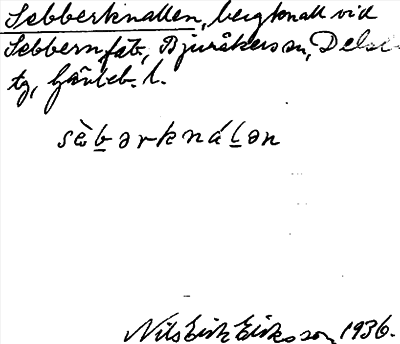 Sebberknallen, bergknall vid
Sebbern fäb, Bjuråkers sn, Dels-
tg, Gävleb. l.
sèbərknálən
Nils Erik Eriksson 1936.